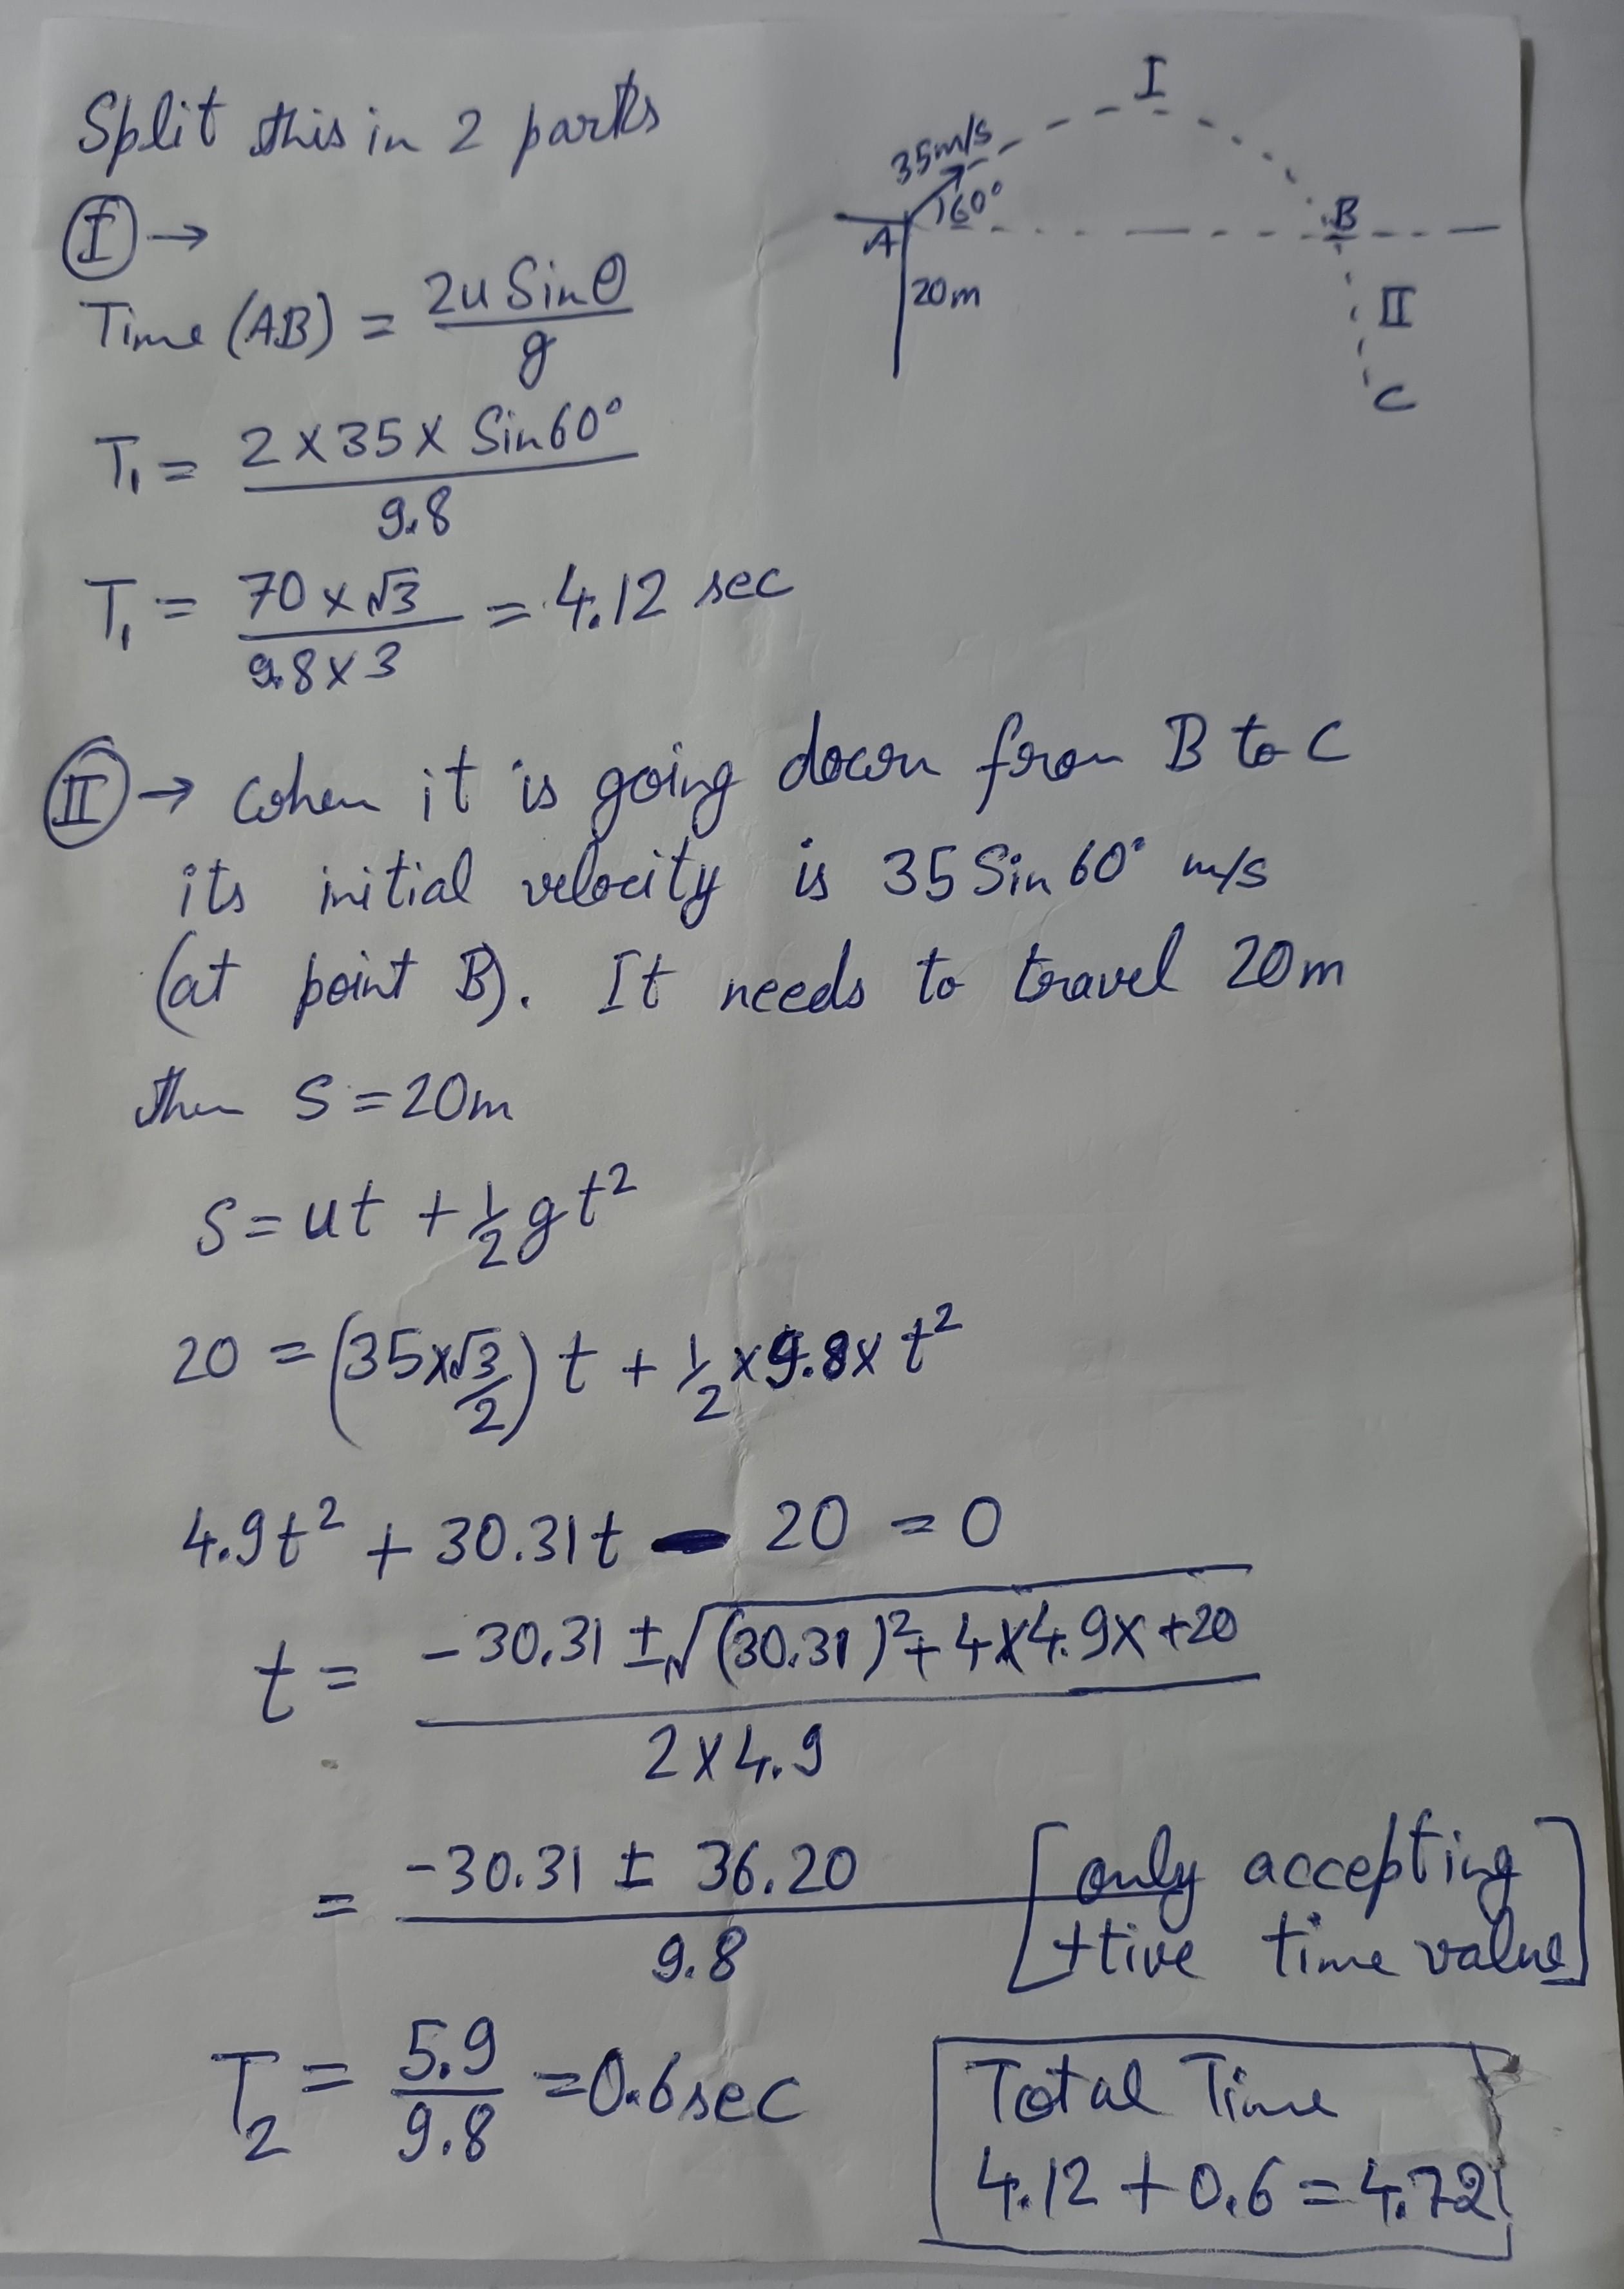 Split this in 2 parts
I →
Time (AB) = 2u Sinθ / g
T₁ = 2 x 35 x Sin60° / 9.8
T₁ = 70 x √3 / 9.8 x 3 = 4.12 sec
I
35m/s
60°
A
B
20m
II
C
II → when it is going down from B to C
its initial velocity is 35 Sin 60° m/s
(at point B). It needs to travel 20m
then S = 20m
S = ut + 1/2 gt²
20 = (35x√3/2) t + 1/2 x 9.8 x t²
4.9t² + 30.31t - 20 = 0
t = -30.31 ± √(30.31)² + 4x4.9x+20 / 2 x 4.9
= -30.31 ± 36.20 / 9.8 [only accepting
+tive time value]
T₂ = 5.9 / 9.8 = 0.6sec
Total Time
4.12 + 0.6 = 4.72